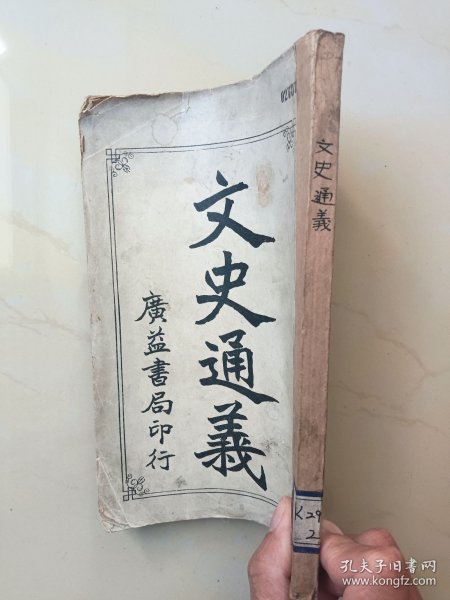 文史通義
廣益書局印行
文史通義
K29
2
孔夫子旧书网
www.kongfz.com